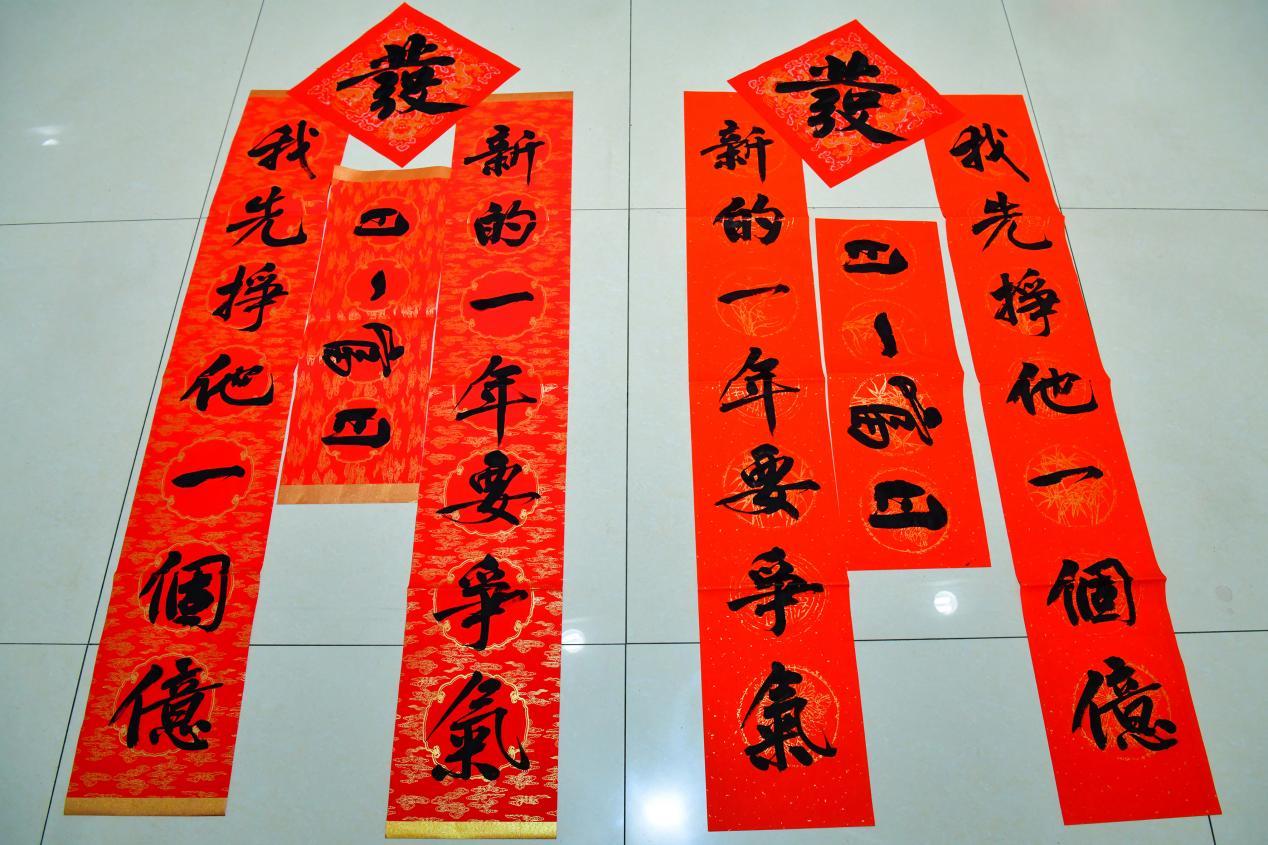 發
新的一年要爭氣
我先掙他一個億
發
新的一年要爭氣
我先掙他一個億